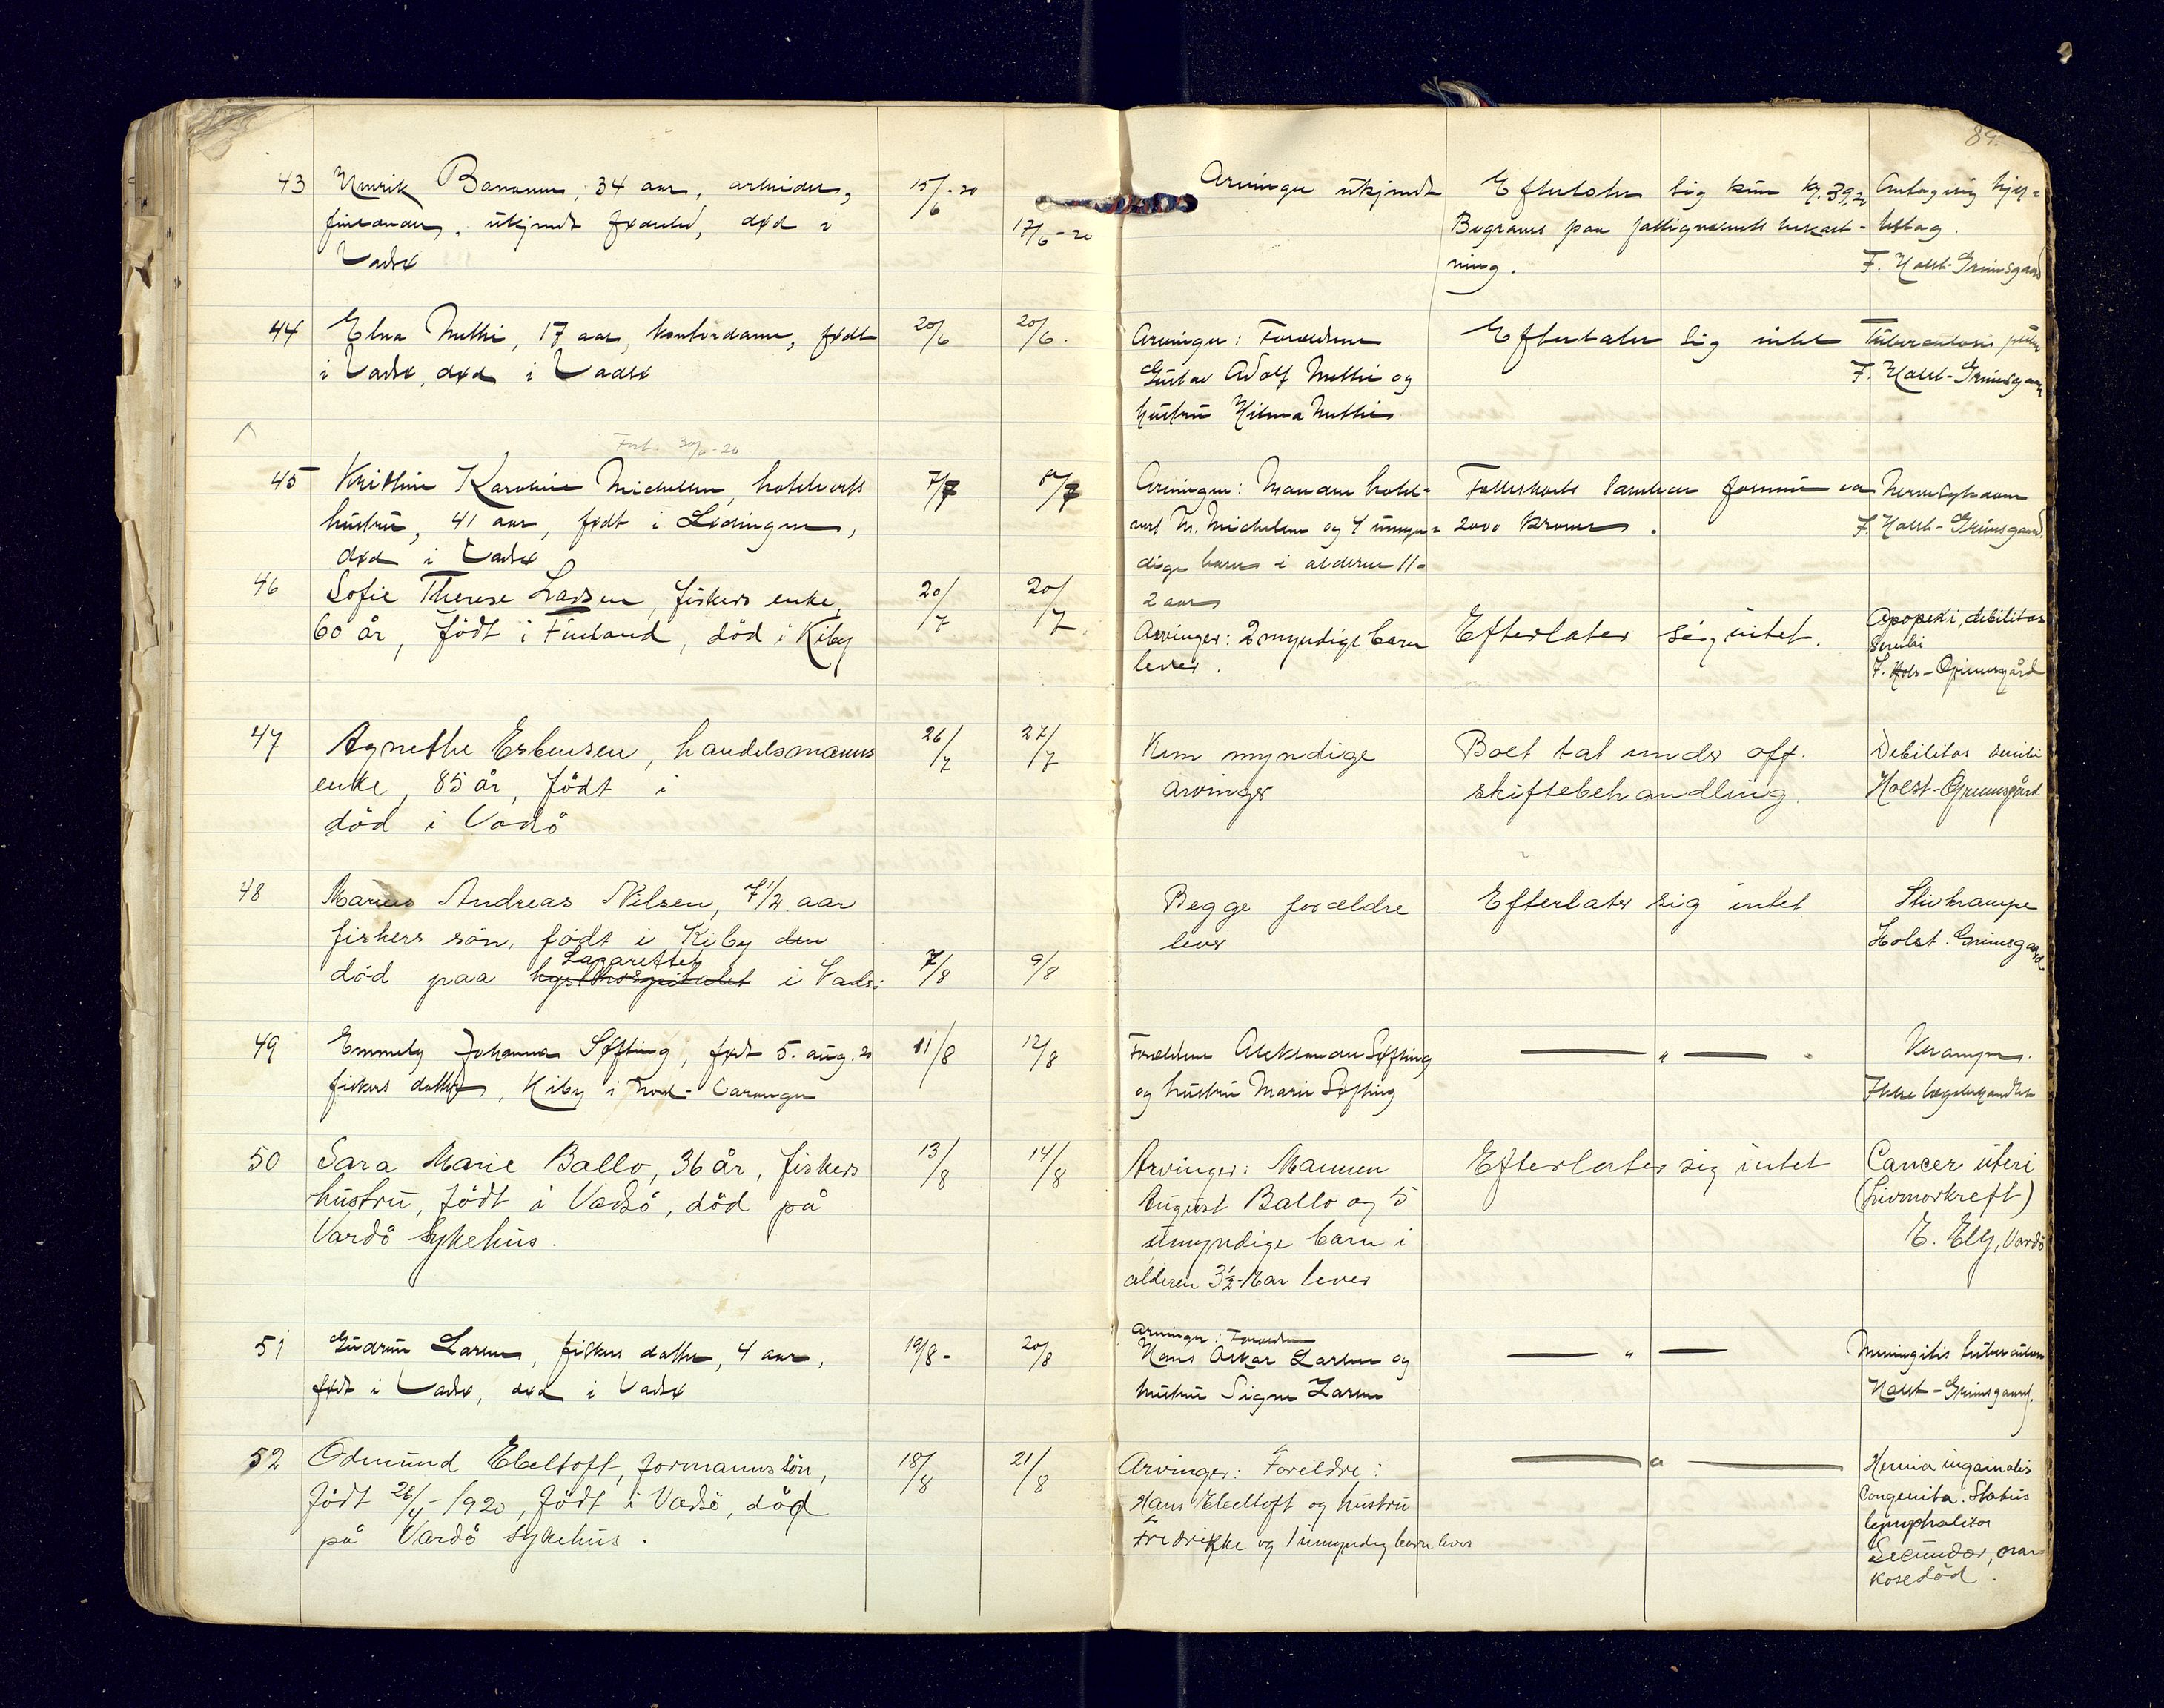 84.
43 Henrik , 34 aar, arbeider, 15/6-20 Arvinger ukjendt Efterlater sig kun kr. 39, Antagelig hjer=
finlænder, ukjendt fødested, død i 17/6-20 Begraves paa fattigvæsenets bekost- teslag.
Vadsø ning. F. Holst-Grimsgaard
44 Elna Mathi, 17 aar, kontordame, født 20/6 20/6. Arvinger: Forældrene Efterlater sig intet Tuberculosis
i Vadsø, død i Vadsø Gustav Adolf Mathi og F. Holst-Grimsgaard
hustru Hilma Mathi
30/ -20
45 Kristine Karoline Michelsen, hotelverts 7/7 8/7 Arvinger: Manden hotel- Felleskarets samlede formue ca Nervesykdom
hustru, 41 aar, født i Lødingen, vert M. Michelsen og 4 umyn= 2000 kroner. F. Holst-Grimsgaard.
død i Vadsø dige barn i alderen 11-
2 aar
46 Sofie Therese Larsen, fiskers enke, 20/7 20/7. Arvinger: 2 myndige barn Efterlater sig intet. Apopexi, debilitas
60 år, födt i Finland, död i Kiby lever. senilis
F. Hols-Grimsgård
47 Agnethe Esbensen, handelsmanns 26/7 27/7 Kun myndige Boet tat under off. Debilitas senilis
enke, 85 år, födt i arvinger skiftebehandling. Holst-Grimsgård
död i Vadsö
48 Marius Andreas Nilsen, 7 1/2 aar Begge forældre Efterlater sig intet Stivkrampe
fiskers sön, födt i Kiby den lever Holst Grimsgaard
Lazarettet
död paa hospitalet i Vadsö 7/8 9/8
49 Emmely Johanna Søfting, født 5. aug. 20 11/8 12/8 Forældrene Aleksander Søfting — " — Krampe.
fiskers datter, Kiby i Nord-Varanger og hustru Marie Søfting Ikke lægebehandlet
50 Sara Marie Ballo, 36 år, fiskers 13/8 14/8 Arvinger: Mannen Efterlater sig intet Cancer uteri
hustru, födt i Vadsö, död på August Ballo og 5 (Livmorkreft)
Vardö Sykehus. umyndige barn i E. Elly, Vardö
alderen 3 1/2- aar lever
51 Gudrun Larsen, fiskers datter, 4 aar, 19/8- 20/8 Arvinger: Forældrene — " — Meningitis tuberculosa
født i Vadsø, død i Vadsø Hans Oskar Larsen og Holst-Grimsgaard.
hustru Signe Larsen
52 Odmund Ebeltoft, formanns sön, 18/8 21/8 Arvinger: Foreldre: — " — Hernia ingainalis
födt 26/4-1920, födt i Vadsö, död Hans Ebeltoft og hustru Congenita. Status
på Vardö sykehus. Fredrikke og 1 umyndig barn lever lymphaticus
Secundær, nar-
kosedöd.